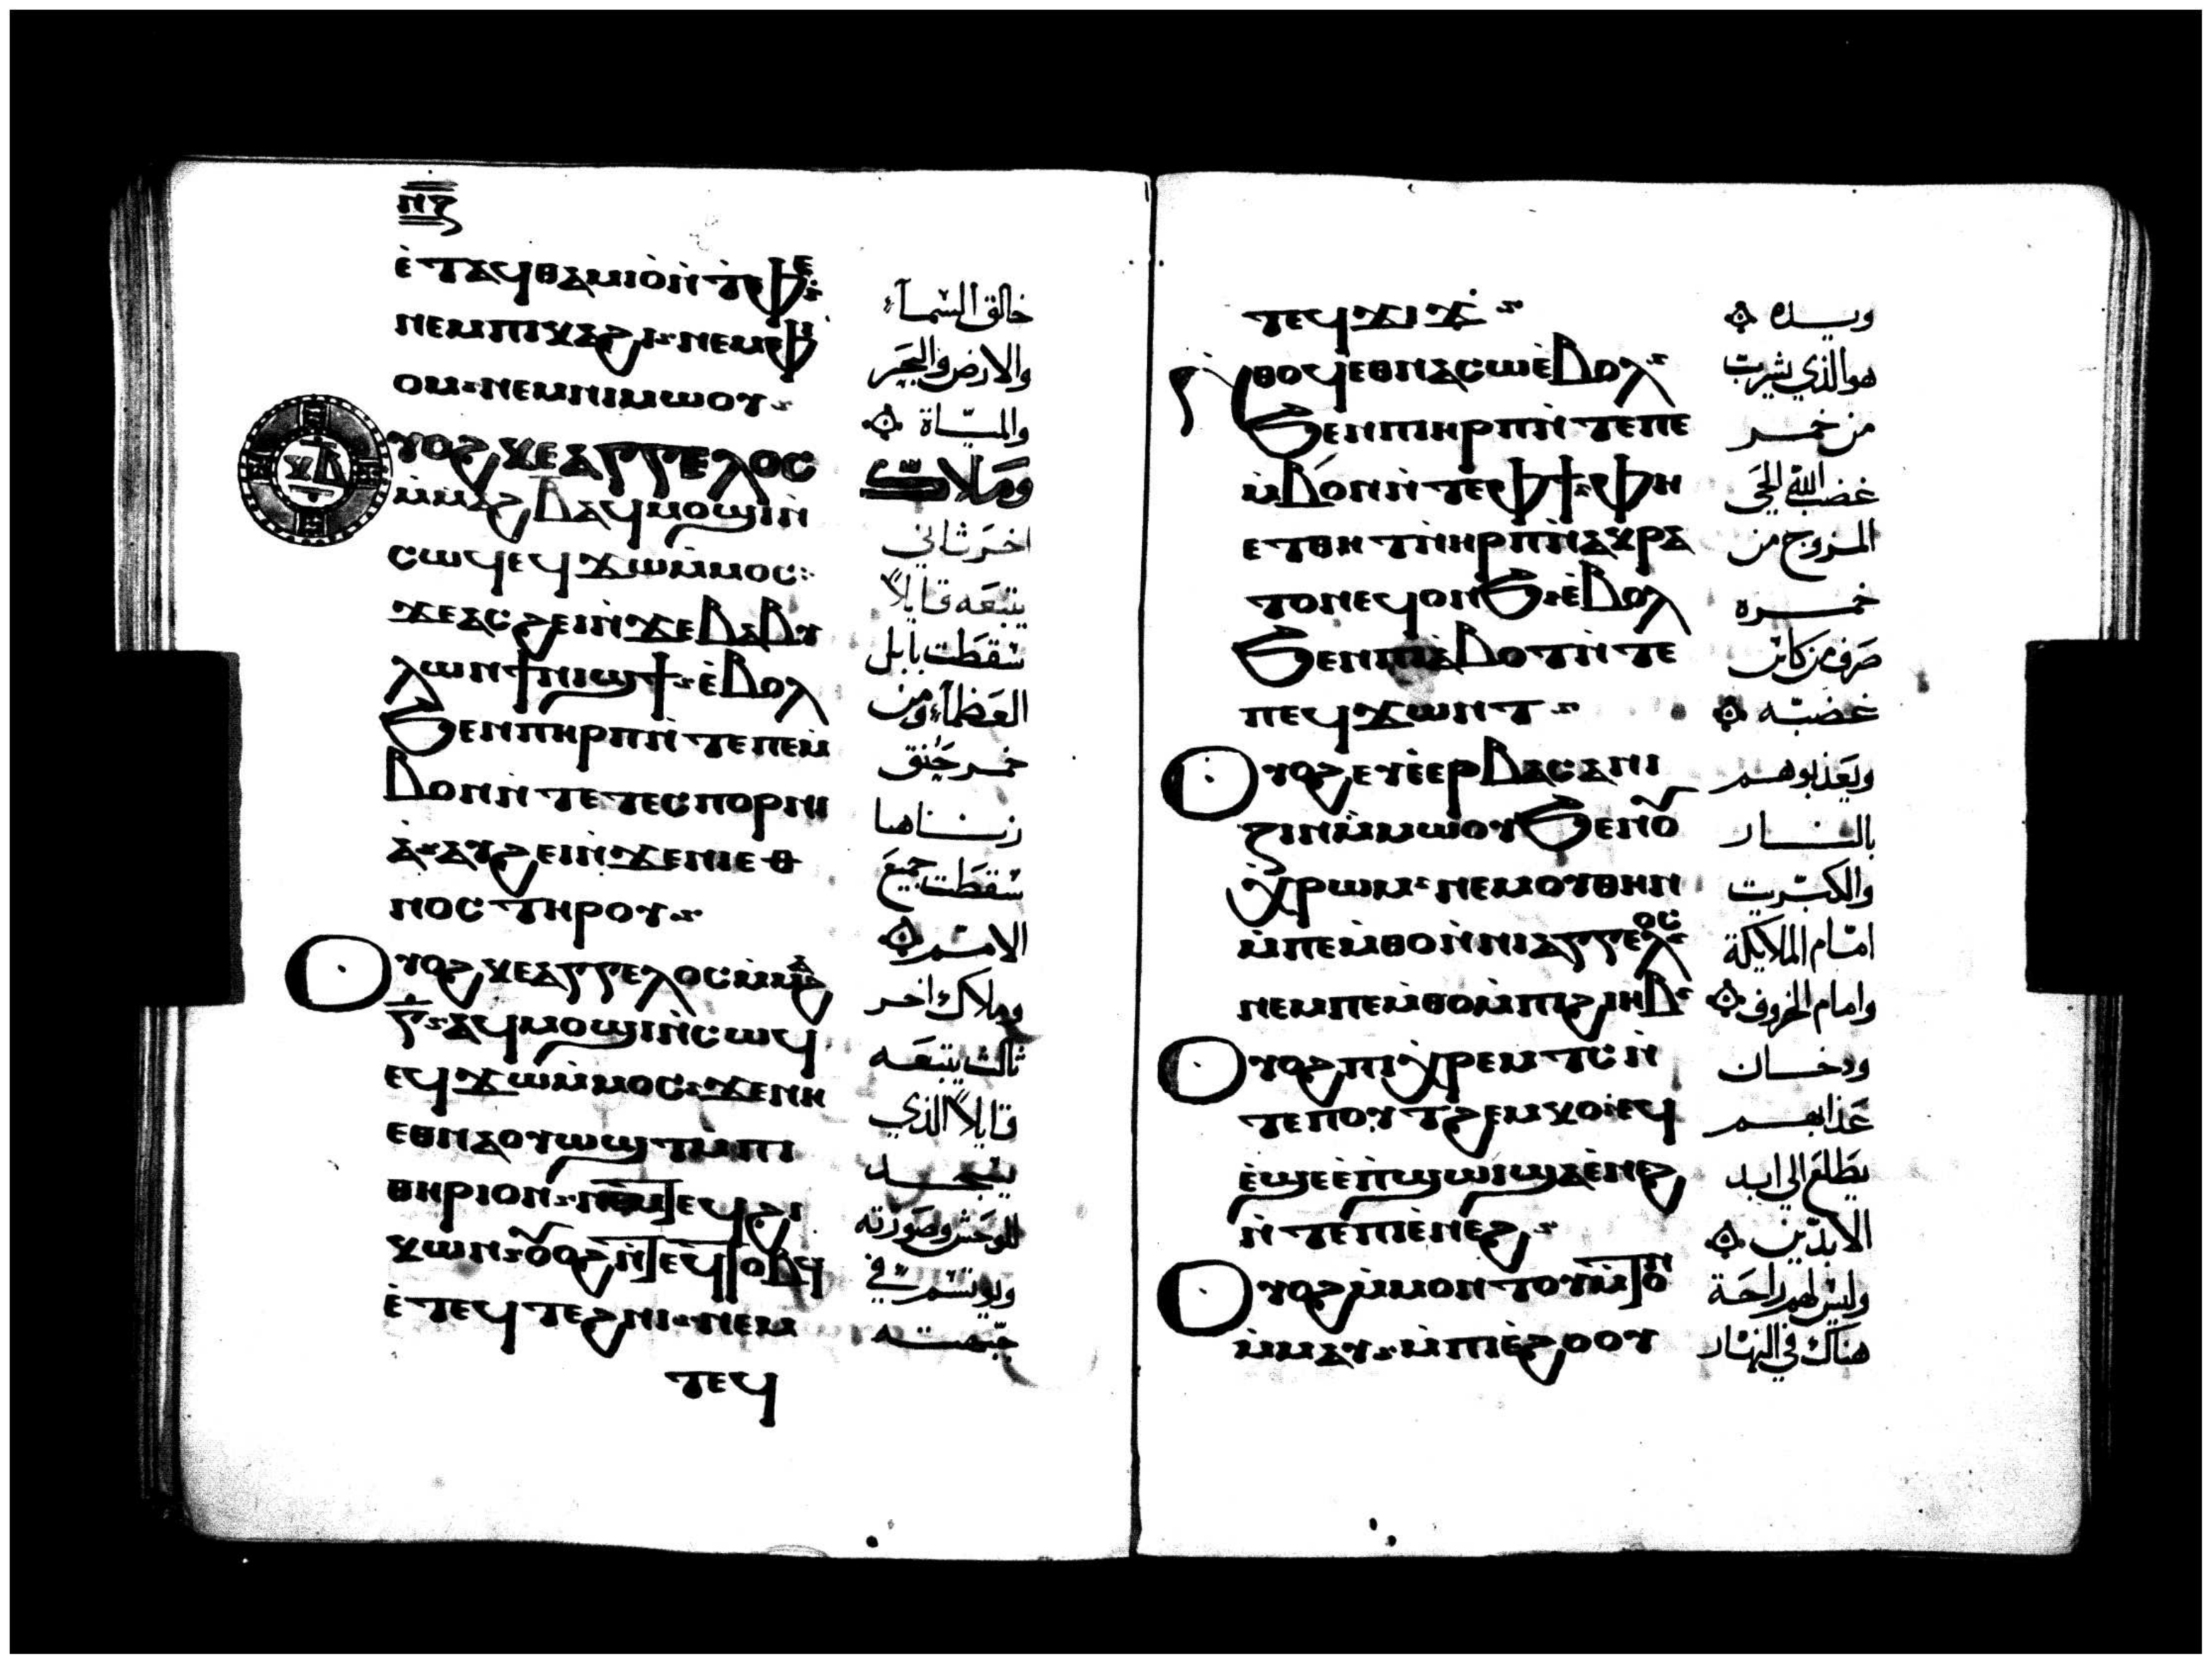 ⲛⲋ
ⲉ̀ⲧⲁϥⲑⲁⲙⲓⲟ̀ ⲛ̀ⲧⲫⲉ
ⲛⲉⲙ ⲡⲓⲕⲁϩⲓ ⲛⲉⲙ ⲫⲓ
ⲟⲙ ⲛⲉⲙ ⲛⲓⲙⲱⲟⲩ
ⲩⲟϩ ⲕⲉ ⲁⲅⲅⲉⲗⲟⲥ
ⲙ̀ⲙⲁϩⲃ ⲁϥⲙⲟϣⲓ ⲛ̀
ⲥⲱϥ ⲉϥϫⲱ ⲙ̀ⲙⲟⲥ
ϫⲉ ⲁⲥϩⲉⲓ ⲛ̀ϫⲉ ⲃⲁⲃⲩ
ⲗⲱⲛ ϯⲛⲓϣϯ ⲉ̀ⲃⲟⲗ
ϧⲉⲛ ⲡⲏⲣⲡ ⲛ̀ⲧⲉ ⲡⲉⲙ̀
ⲃⲟⲛ ⲛ̀ⲧⲉ ⲧⲉⲥⲡⲟⲣⲛⲓ
ⲁ̀ ⲁⲩϩⲉⲓ ⲛ̀ϫⲉ ⲛⲓⲉⲑ
ⲛⲟⲥ ⲧⲏⲣⲟⲩ
Ⲟⲩⲟϩ ⲕⲉ ⲁⲅⲅⲉⲗⲟⲥ ⲙ̀ⲙⲁϩ
ⲅ̅ ⲁϥⲙⲟϣⲓ ⲛ̀ⲥⲱϥ
ⲉϥϫⲱ ⲙ̀ⲙⲟⲥ ϫⲉ ⲛⲏ
ⲉⲑⲛⲁⲟⲩⲱϣⲧ ⲙ̀ⲡⲓ
ⲑⲏⲣⲓⲟⲛ ⲛⲉⲙ ⲧⲉϥϩⲓ
ⲕⲱⲛ ⲟⲩⲟϩ ⲛ̀ⲧⲉϥⲧⲟⲃϥ
ⲉ̀ ⲧⲉϥⲧⲉϩⲛⲓ ⲛⲉⲙ
ⲧⲉϥ
خالق السمآء
والارض والبحر
والمياة
وملاك
اخر ثاني
يتبعه قايلاً
سقطت بابل
العظمآء ومن
خمر حنق
زناها
سقطت جميع
الامم
وملاك اخر
ثالث يتبعه
قايلاً الذي
يسجد
للوحش وصورته
ويوتسم في
جبهته
ⲧⲉϥϫⲓϫ
Ⲛ̀ⲑⲟϥ ⲉⲑⲛⲁⲥⲱ ⲉ̀ⲃⲟⲗ
ϧⲉⲛ ⲡⲓⲏⲣⲡ ⲛ̀ⲧⲉ ⲡⲉ
ⲙ̀ⲃⲟⲛ ⲛ̀ⲧⲉ ⲫϯ ⲫⲏ
ⲉⲧⲑⲏⲧ ⲛ̀ⲏⲣⲡ ⲛ̀ⲁⲕⲣⲁ
ⲧⲟⲛ ⲉϥⲟⲛϧ ⲉ̀ⲃⲟⲗ
ϧⲉⲛ ⲡⲓⲁ̀ⲃⲟⲧ ⲛ̀ⲧⲉ
ⲡⲉϥϫⲱⲛⲧ
Ⲟⲩⲟϩ ⲉⲩⲉ̀ⲉⲣⲃⲁⲥⲁⲛⲓ
ⲍⲓⲛ ⲙ̀ⲙⲱⲟⲩ ϧⲉⲛ ⲟⲩ
ⲭ̀ⲣⲱⲙ ⲛⲉⲙ ⲟⲩⲑⲏⲛ
ⲙ̀ⲡⲉⲙ̀ⲑⲟ ⲛ̀ⲛⲓⲁⲅⲅⲉⲗⲟⲥ
ⲛⲉⲙ ⲡⲉⲙ̀ⲑⲟ ⲙ̀ⲡⲓϩⲓⲏⲃ
Ⲟⲩⲟϩ ⲡⲓⲭ̀ⲣⲉⲙⲧⲥ ⲛ̀
ⲧⲉ ⲡⲟⲩⲧϩⲉⲙⲕⲟ ⲉϥ
ⲉ̀ϣⲉ ⲉ̀ⲡ̀ϣⲱⲓ ϣⲁ ⲉ̀ⲛⲉϩ
ⲛ̀ⲧⲉ ⲡⲓⲉ̀ⲛⲉϩ
Ⲟⲩⲟϩ ⲙ̀ⲙⲟⲛ ⲧⲟⲩ ⲙ̀ⲧⲟⲛ
ⲙ̀ⲙⲁⲩ ⲙ̀ⲡⲓⲉ̀ϩⲟⲟⲩ
ويده
هو الذي يشرب
من خمر
غضب الله الحي
المزوج من
خمره
صرف من كاس
غضبه
ويعذبوهم
بالنار
والكبريت
امام الملايكة
وامام الخروف
ودخان
عذابهم
يطلع الي ابد
الابدين
وليس لهم راحة
هناك في النهار